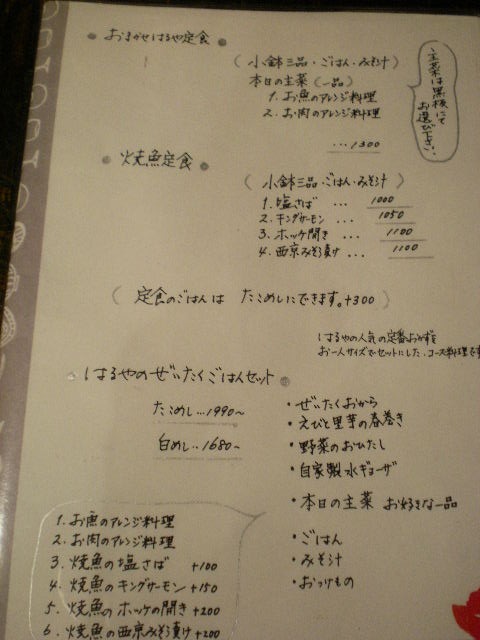 おまかせはるや定食
(小鉢三品・ごはん・みそ汁)
本日の主菜(一品)
1. お魚のアレンジ料理
2. お肉のアレンジ料理
...1300
主菜は黒板にて
お選び下さい。
焼魚定食
(小鉢三品・ごはん・みそ汁)
1. 塩さば ... 1000
2. キングサーモン ... 1050
3. ホッケ開き ... 1100
4. 西京みそ漬け ... 1100
(定食のごはんは たこめしにできます。+300)
はるやの人気の定番おかずを
お一人サイズでセットにした、コース料理です
はるやのぜいたくごはんセット
たこめし...1990〜
白めし...1680〜
・ぜいたくおから
・えびと里芋の春巻き
・野菜のおひたし
・自家製水ギョーザ
・本日の主菜 お好きな一品
・ごはん
・みそ汁
・おつけもの
1. お魚のアレンジ料理
2. お肉のアレンジ料理
3. 焼魚の塩さば +100
4. 焼魚のキングサーモン +150
5. 焼魚のホッケの開き +200
6. 焼魚の西京みそ漬け +200